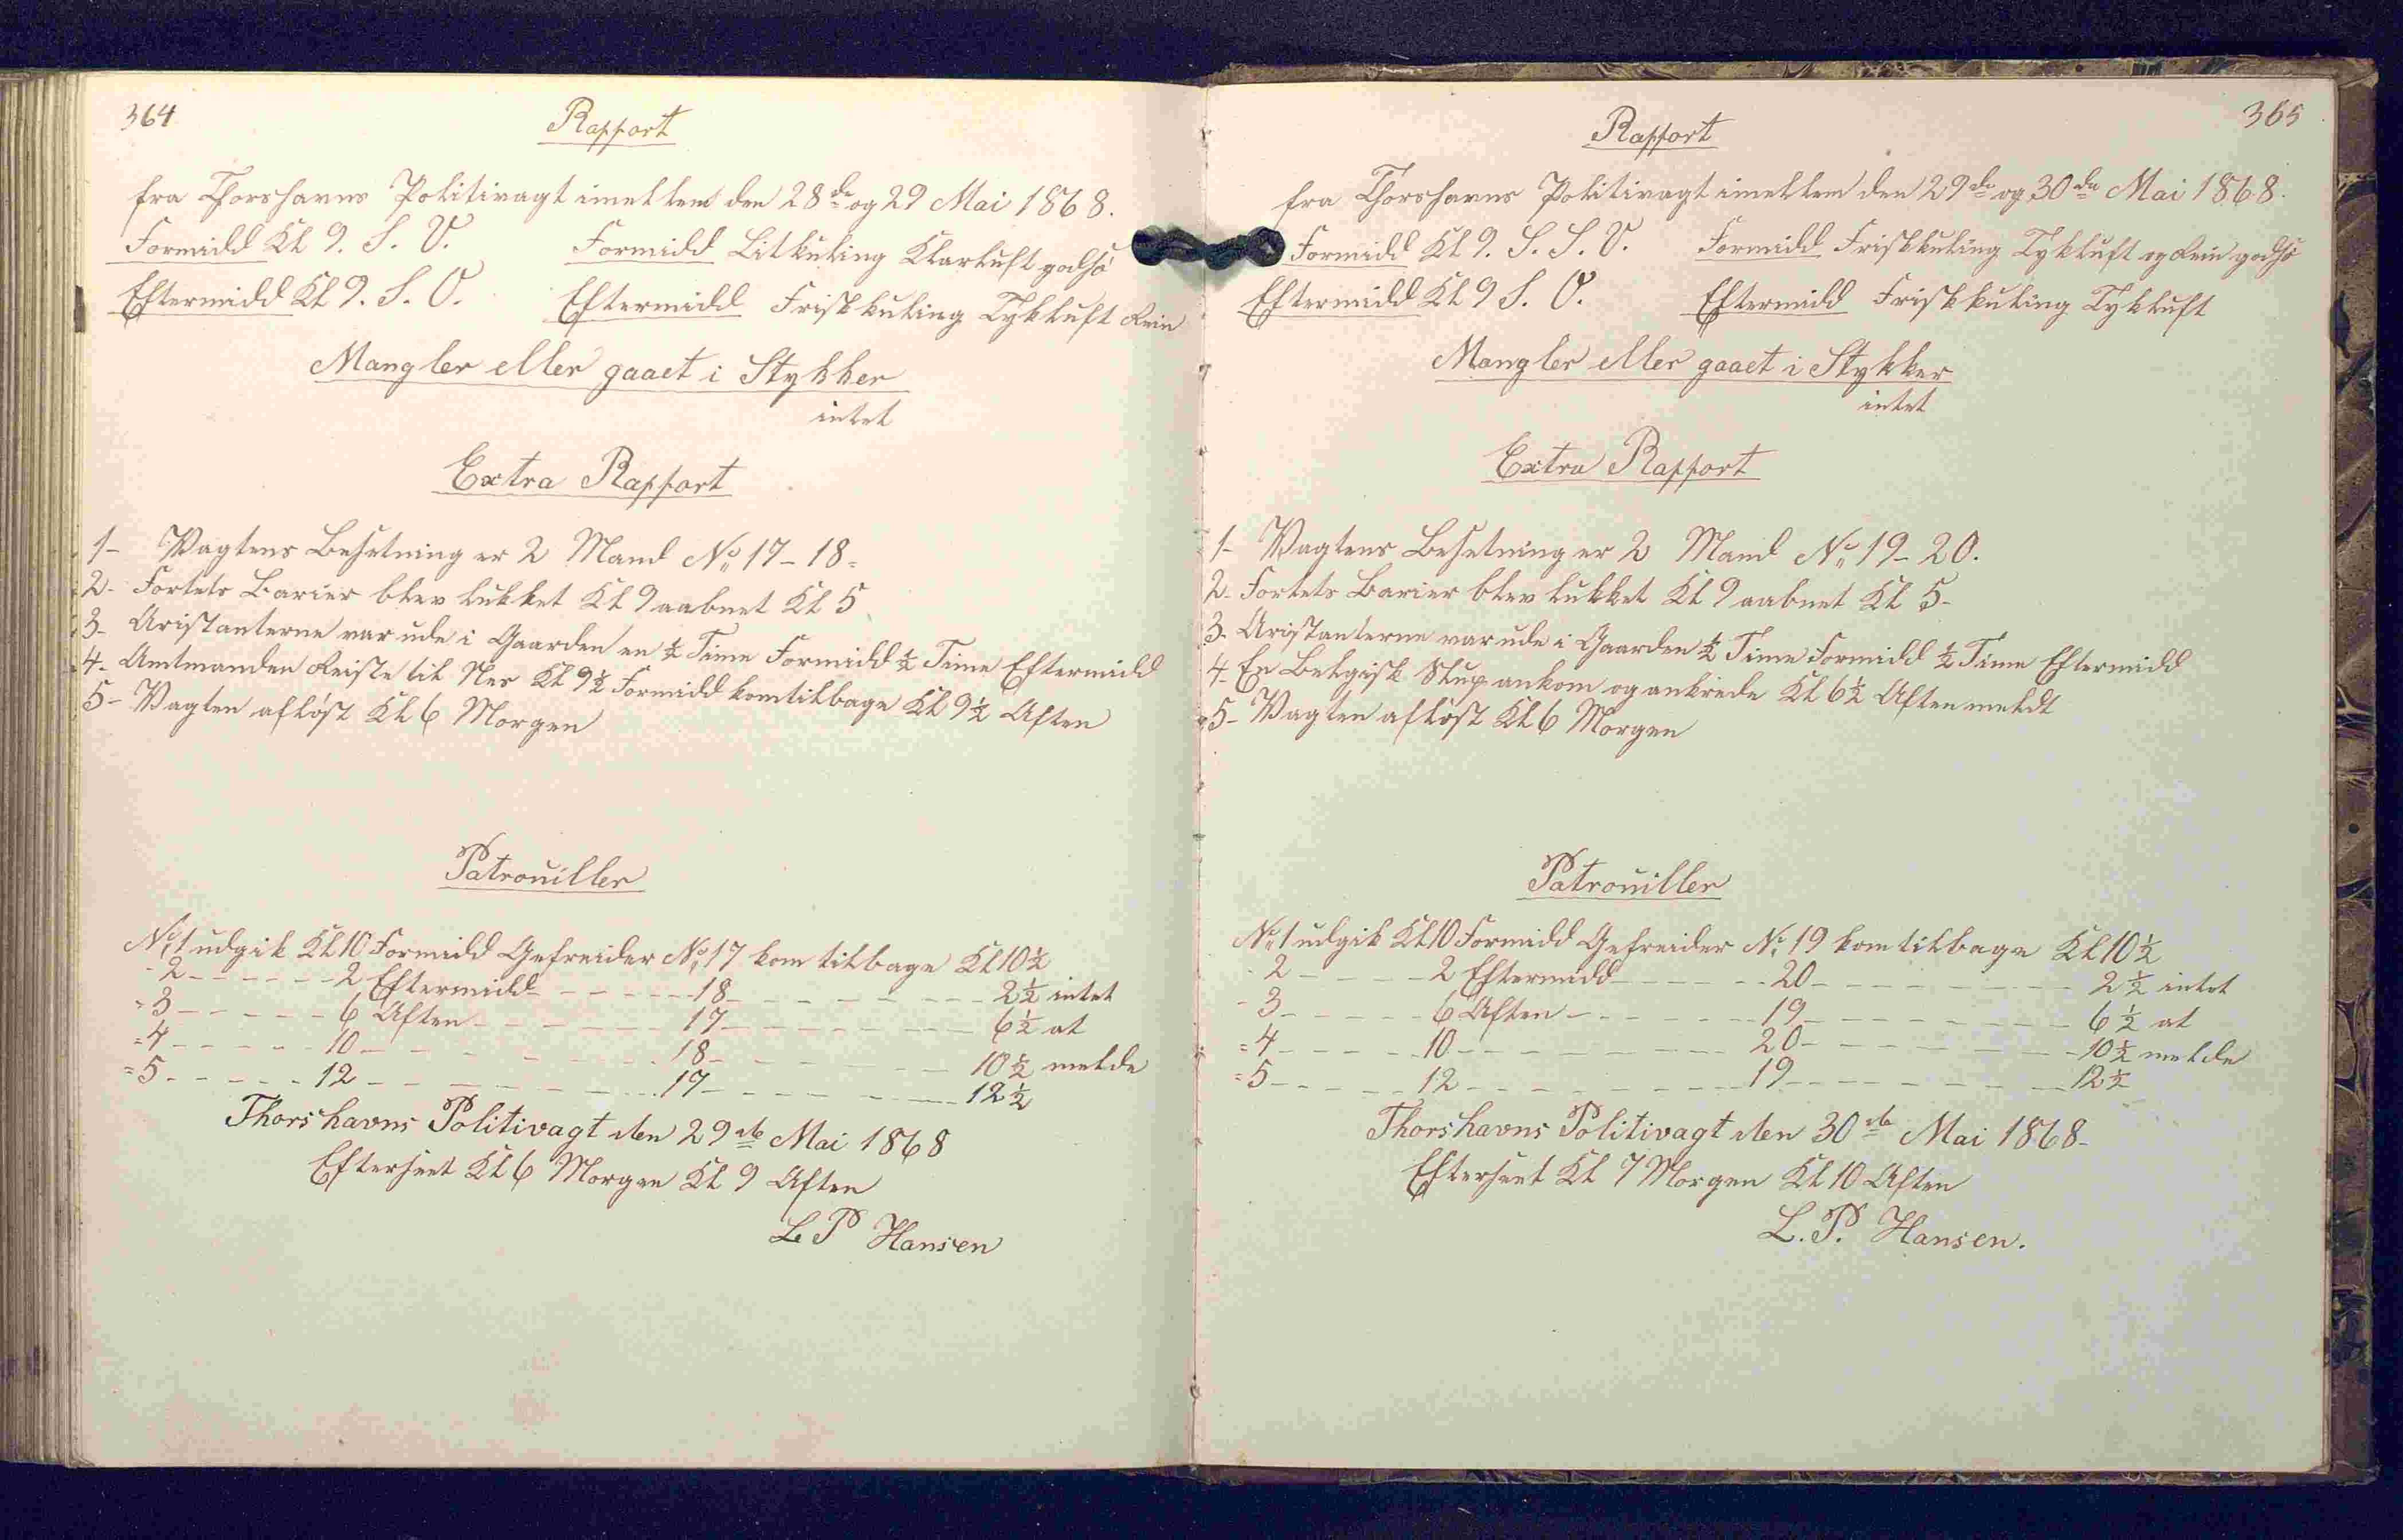 364
Rapport
fra Thorshavns Politivagt imellem den 28de og 29 Mai 1868.
Formidd Kl 9. S. V. Formidd Litkuling Klarluft godsö
Eftermidd Kl 9. S. O. Eftermidd Friskkuling Tykluft Rein
Mangler eller gaaet i Stykker
intet
Extra Rapport
1- Vagtens Besetning er 2 Mand No 17-18-
2- Fortets Barier blev lukket Kl 9 aabnet Kl 5
3- Aristanterne var ude i Gaarden en ½ Time Formidd ½ Time Eftermidd
4- Amtmanden Reiste til Nes Kl 9½ Formidd kom tilbage Kl 9½ Aften
5- Vagten aflöst Kl 6 Morgen
Patrouiller
No 1 udgik Kl 10 Formidd Gefreider No 17 kom tilbage Kl 10½
- 2 - - - - - - 2 Eftermidd - - - - - - 18 - - - - - - - - 2½ intet
- 3 - - - - - - 6 Aften - - - - - - - 17 - - - - - - - - 6½ at
= 4 - - - - - 10 - - - - - - - - - 18 - - - - - - - - 10½ melde
= 5 - - - - - 12 - - - - - - - - - 17 - - - - - - - - 12½
Thorshavns Politivagt den 29de Mai 1868
Efterseet Kl 6 Morgen Kl 9 Aften
L P Hansen
365
Rapport
fra Thorshavns Politivagt imellem den 29de og 30de Mai 1868.
Formidd Kl 9. S. S. V. Formidd Friskkuling Tykluft og Rein godsö
Eftermidd Kl 9 S. O. Eftermidd Friskkuling Tykluft
Mangler eller gaaet i Stykker
intet
Extra Rapport
1- Vagtens Besetning er 2 Mand No 19-20.
2- Fortets Barier blev lukket Kl 9 aabnet Kl 5-
3- Aristanterne var ude i Gaarden ½ Time Formidd ½ Time Eftermidd
4- En Belgisk Slup ankom og ankrede Kl 6½ Aften meldt
5- Vagten aflöst Kl 6 Morgen
Patrouiller
No 1 udgik Kl 10 Formidd Gefreider No 19 kom tilbage Kl 10½
- 2 - - - - - 2 Eftermidd - - - - - - 20 - - - - - - - - 2½ intet
- 3 - - - - - 6 Aften - - - - - - - 19 - - - - - - - - 6½ at
= 4 - - - - - 10 - - - - - - - - - 20 - - - - - - - - 10½ melde
= 5 - - - - - 12 - - - - - - - - - 19 - - - - - - - - 12½
Thorshavns Politivagt den 30de Mai 1868-
Efterseet Kl 7 Morgen Kl 10 Aften
L. P. Hansen.